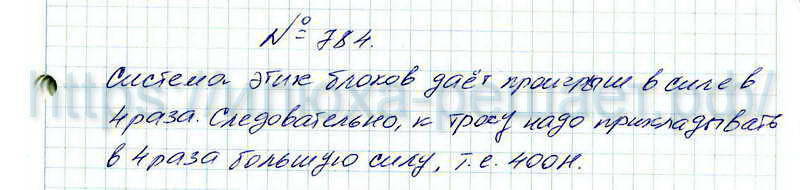 № 784.
Система этих блоков даёт проигрыш в силе в
4 раза. Следовательно, к тросу надо прикладывать
в 4 раза большую силу, т.е. 400 Н.